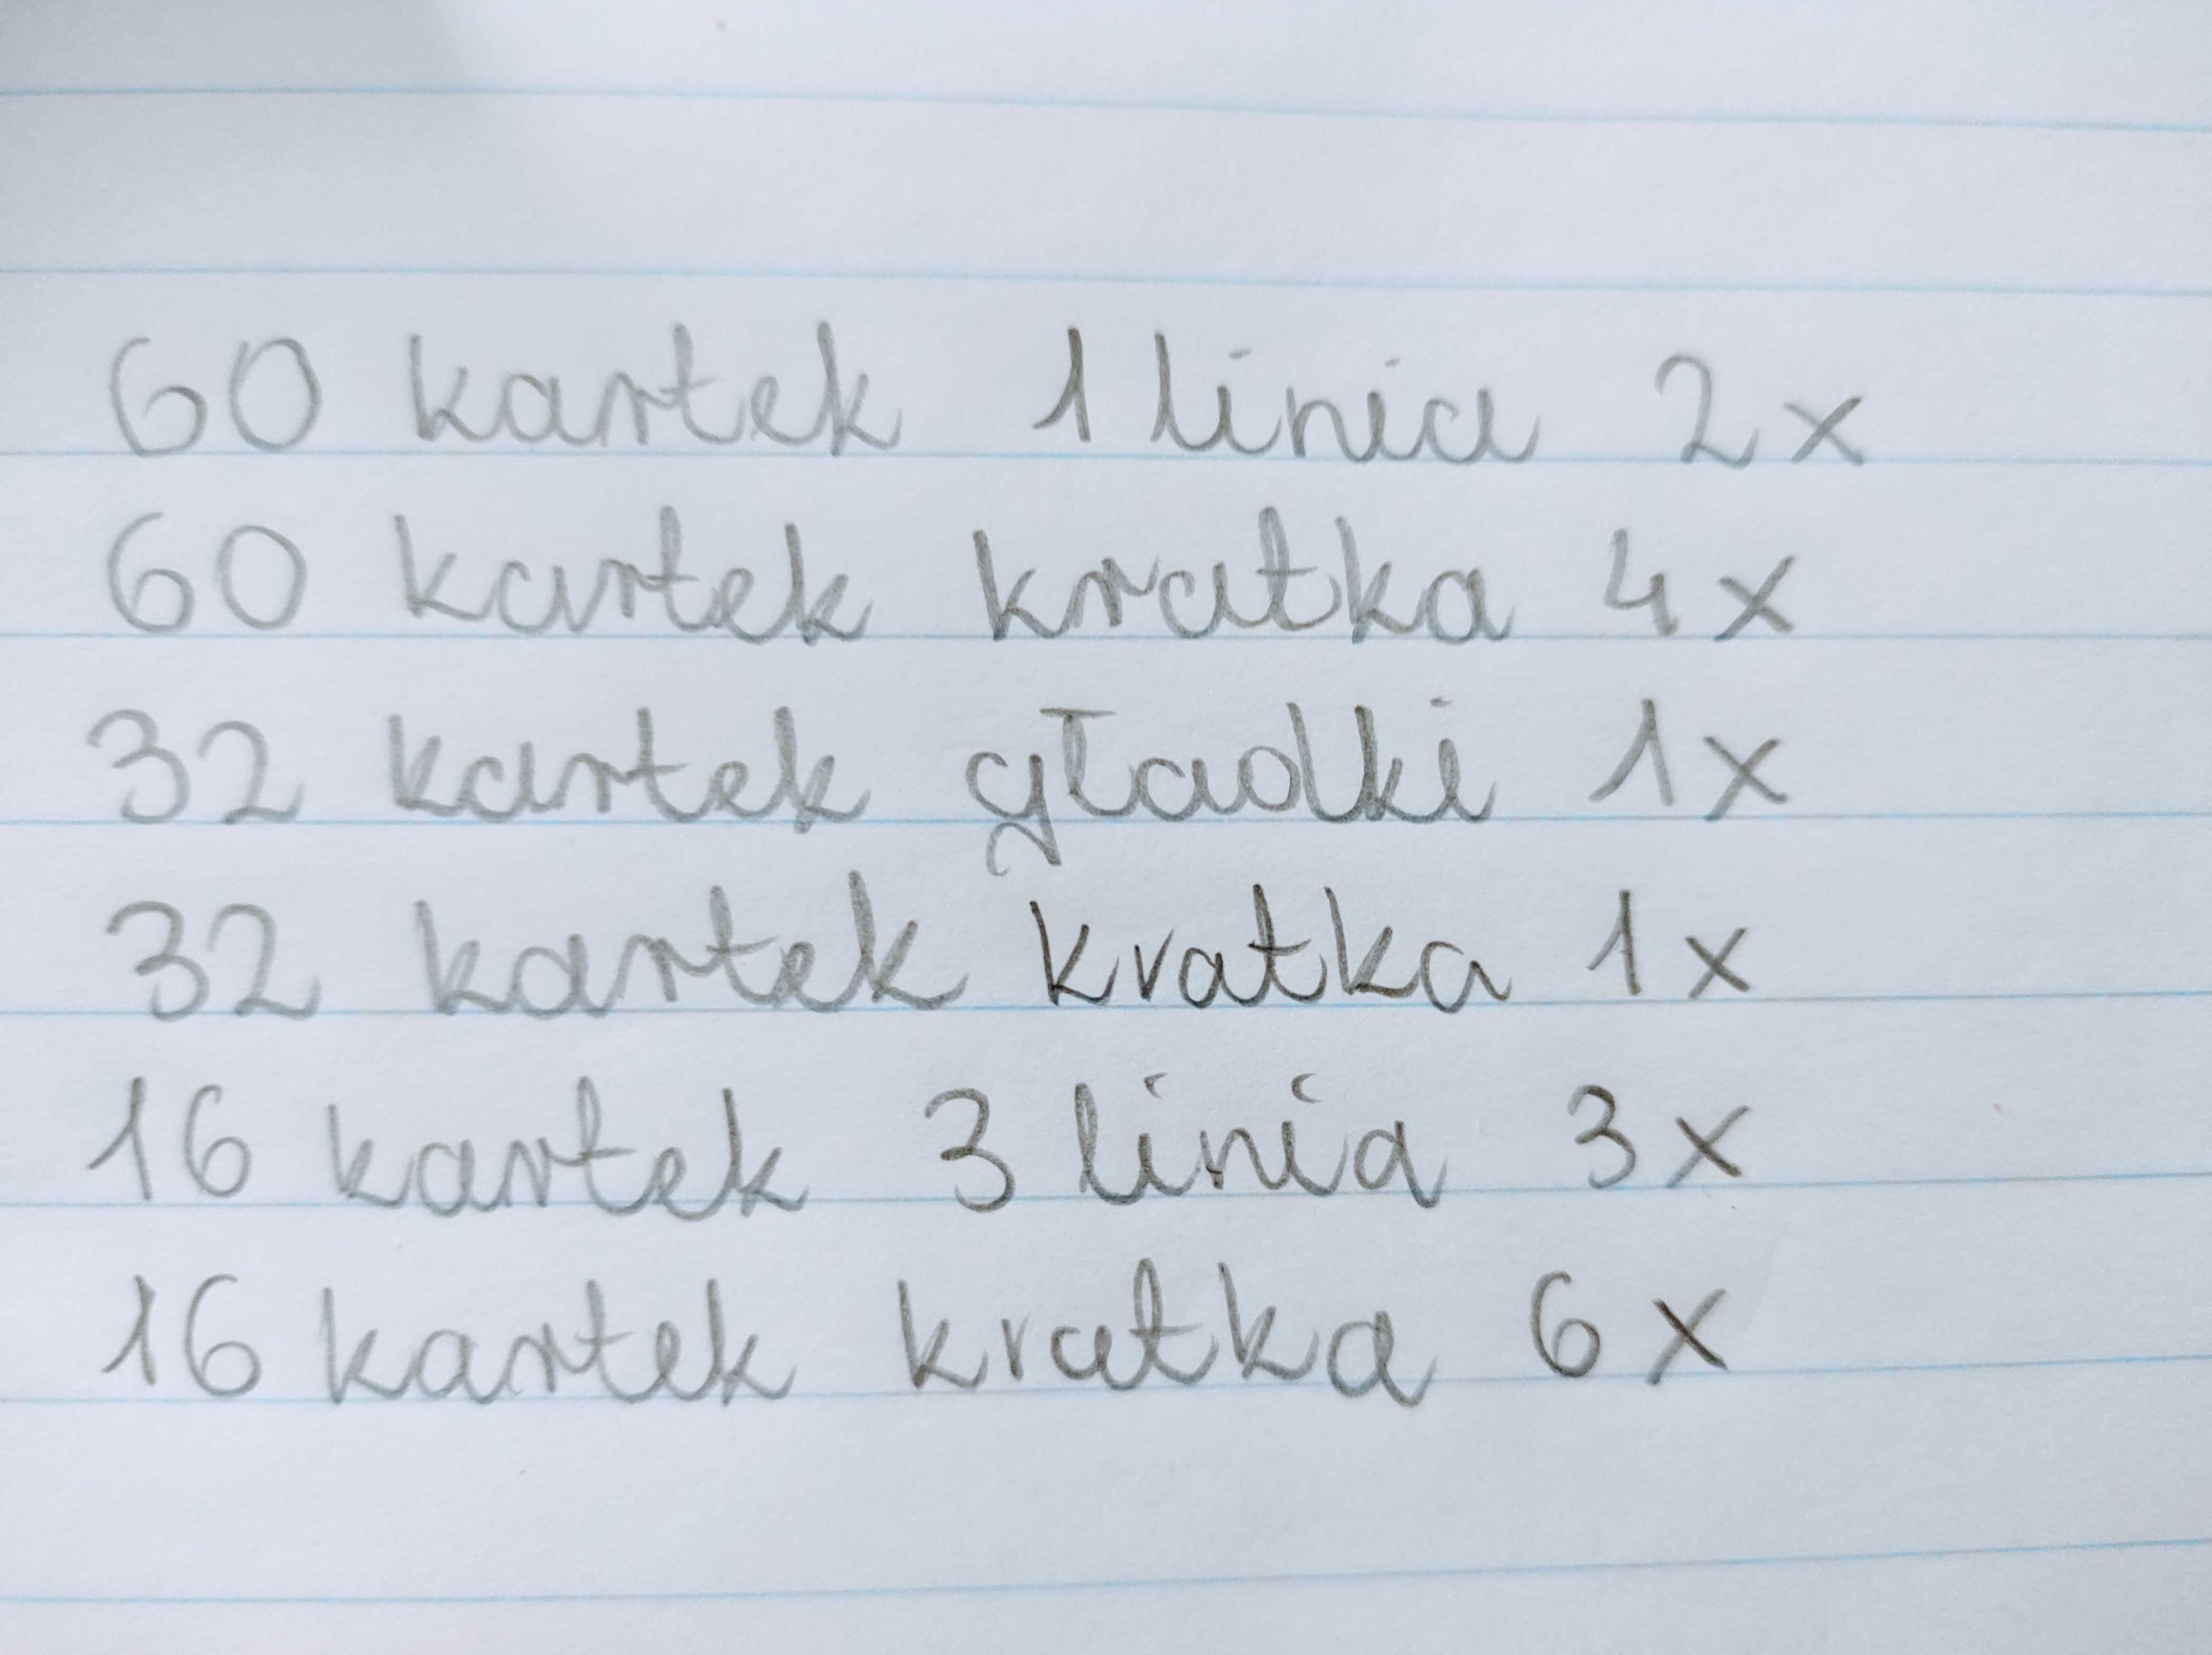 60 kartek 1 linia 2x
60 kartek kratka 4x
32 kartek gładki 1x
32 kartek kratka 1x
16 kartek 3 linia 3x
16 kartek kratka 6x